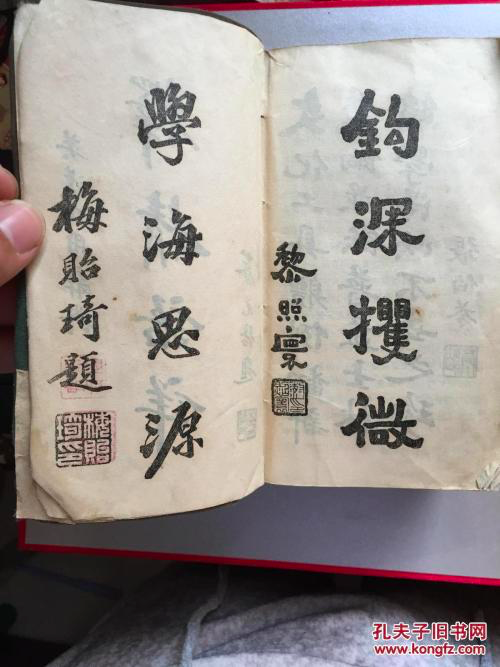 鈎深攫微
黎照寰
學海思源
梅貽琦題
梅貽琦印
孔夫子旧书网
www.kongfz.com